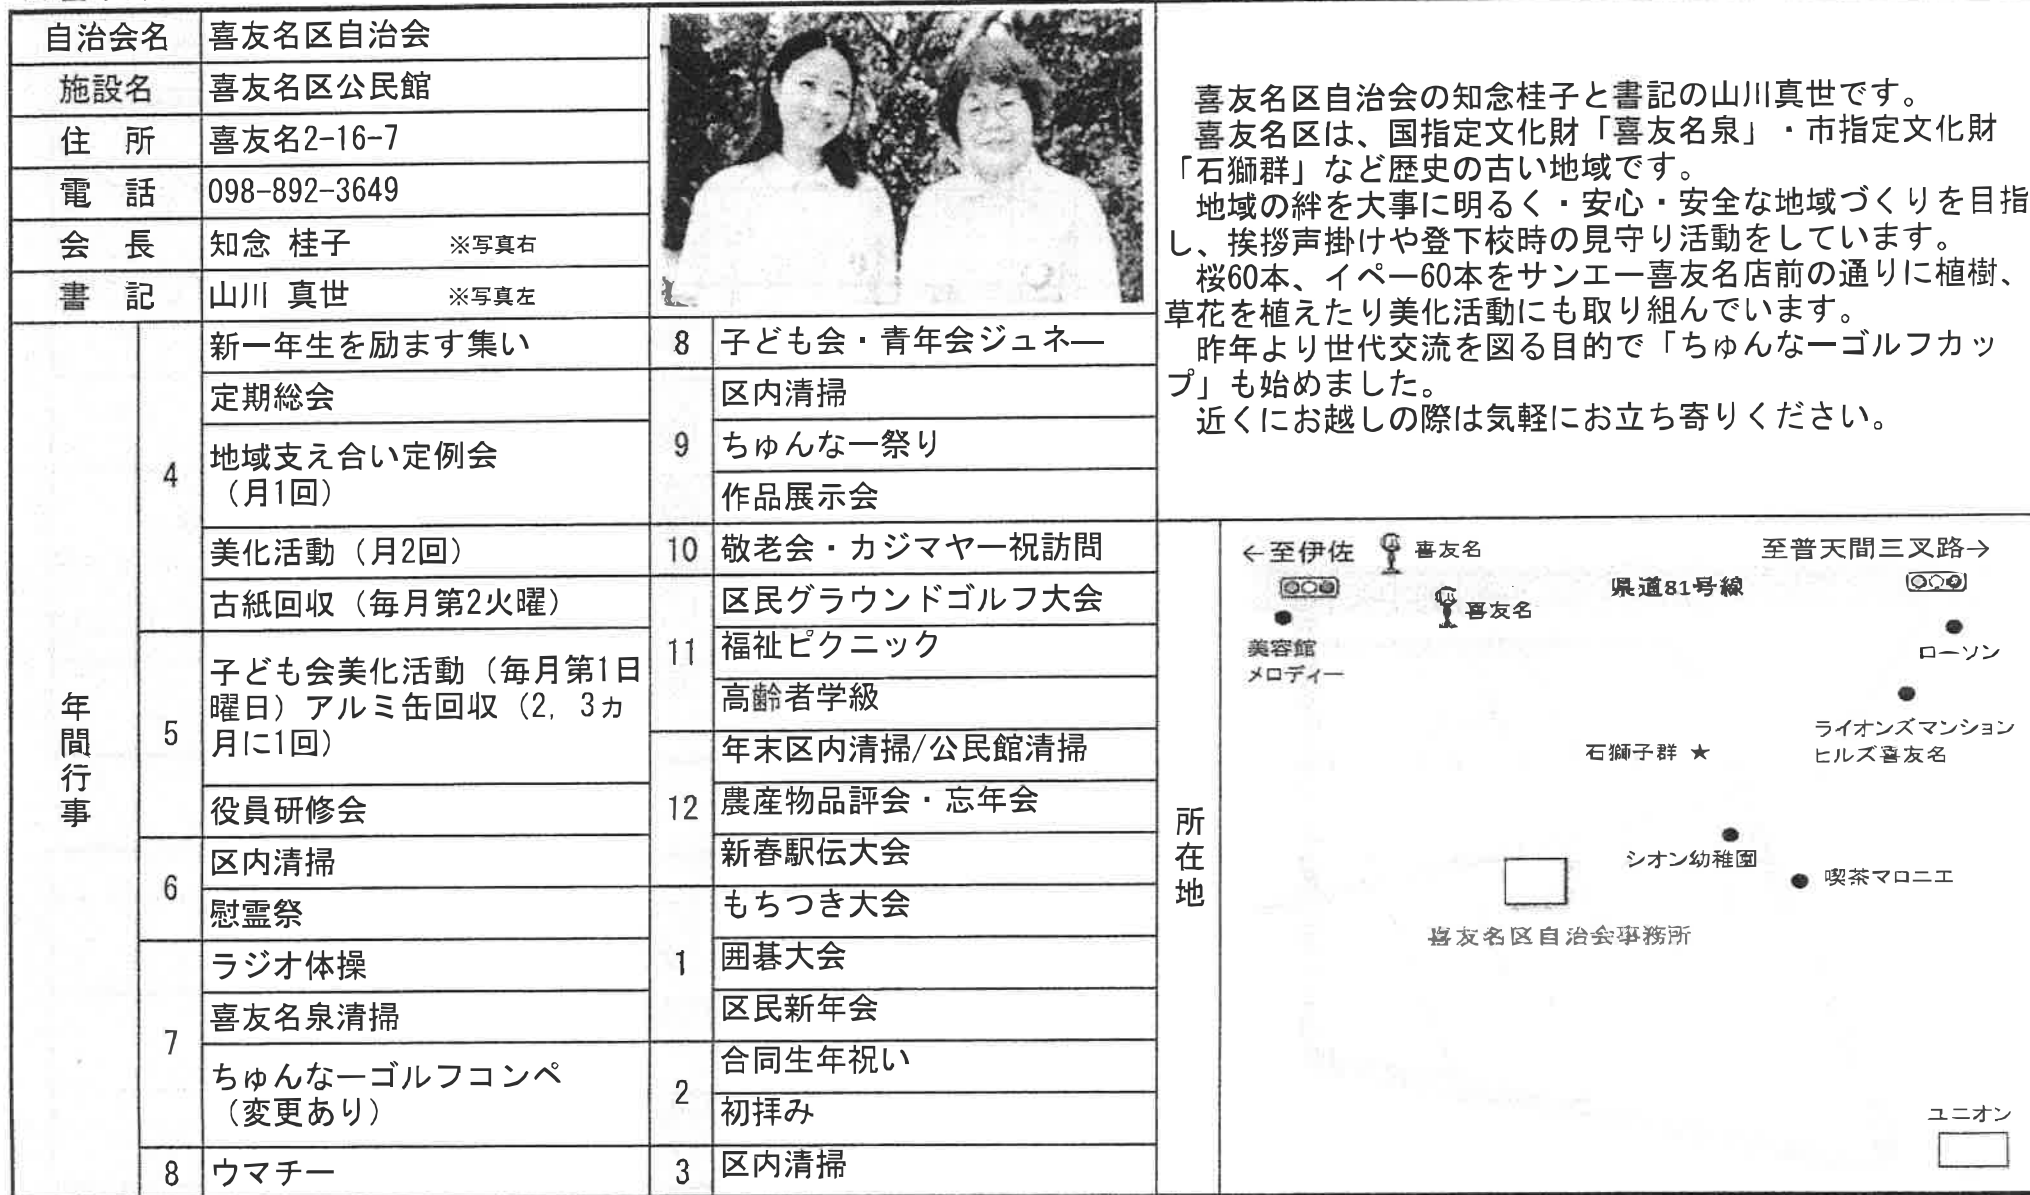 自治会名 喜友名区自治会
施設名 喜友名区公民館
住所 喜友名2-16-7
電話 098-892-3649
会長 知念 桂子 ※写真右
書記 山川 真世 ※写真左
年間行事
4 新一年生を励ます集い
定期総会
地域支え合い定例会
（月1回）
美化活動（月2回）
古紙回収（毎月第2火曜）
5 子ども会美化活動（毎月第1日
曜日）アルミ缶回収（2, 3ヵ
月に1回）
役員研修会
6 区内清掃
慰霊祭
7 ラジオ体操
喜友名泉清掃
ちゅんなーゴルフコンペ
（変更あり）
8 ウマチー
8 子ども会・青年会ジュネ―
9 区内清掃
ちゅんなー祭り
作品展示会
10 敬老会・カジマヤー祝訪問
11 区民グラウンドゴルフ大会
福祉ピクニック
高齢者学級
12 年末区内清掃/公民館清掃
農産物品評会・忘年会
新春駅伝大会
1 もちつき大会
囲碁大会
区民新年会
2 合同生年祝い
初拝み
3 区内清掃
喜友名区自治会の知念桂子と書記の山川真世です。
喜友名区は、国指定文化財「喜友名泉」・市指定文化財
「石獅群」など歴史の古い地域です。
地域の絆を大事に明るく・安心・安全な地域づくりを目指
し、挨拶声掛けや登下校時の見守り活動をしています。
桜60本、イペー60本をサンエー喜友名店前の通りに植樹、
草花を植えたり美化活動にも取り組んでいます。
昨年より世代交流を図る目的で「ちゅんなーゴルフカッ
プ」も始めました。
近くにお越しの際は気軽にお立ち寄りください。
所在地
←至伊佐 喜友名 至普天間三叉路→
県道81号線
喜友名
美容館
メロディー
ローソン
ライオンズマンション
ヒルズ喜友名
石獅子群 ★
シオン幼稚園
喫茶マロニエ
喜友名区自治会事務所
ユニオン